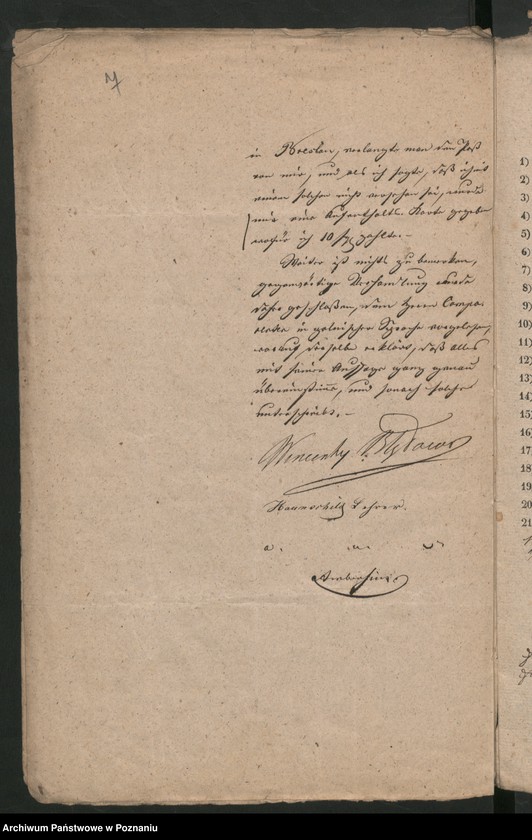 7
in Breslau, verlangte man den Paß
von mir, und als ich sagte, daß ich mit
einem solchen nicht versehen sei, wurde
mir eine Aufenthalts-Karte gegeben
wofür ich 10 Sg zahlte.-
Weiter ist nichts zu bemerken,
gegenwärtige Verhandlung wurde
daher geschloßen, dem Herrn Compa-
renten in polnischer Sprache vorgelesen,
worauf derselbe erklärt, daß alles
mit seiner Aussage ganz genau
übereinstimme, und sonach solche
unterschrieb.-
Wincenty
Lehrer.
a. u. s.
1)
2)
3)
4)
5)
6)
7)
8)
9)
10)
11)
12)
13)
14)
15)
16)
17
18
19
20
21
Archiwum Państwowe w Poznaniu